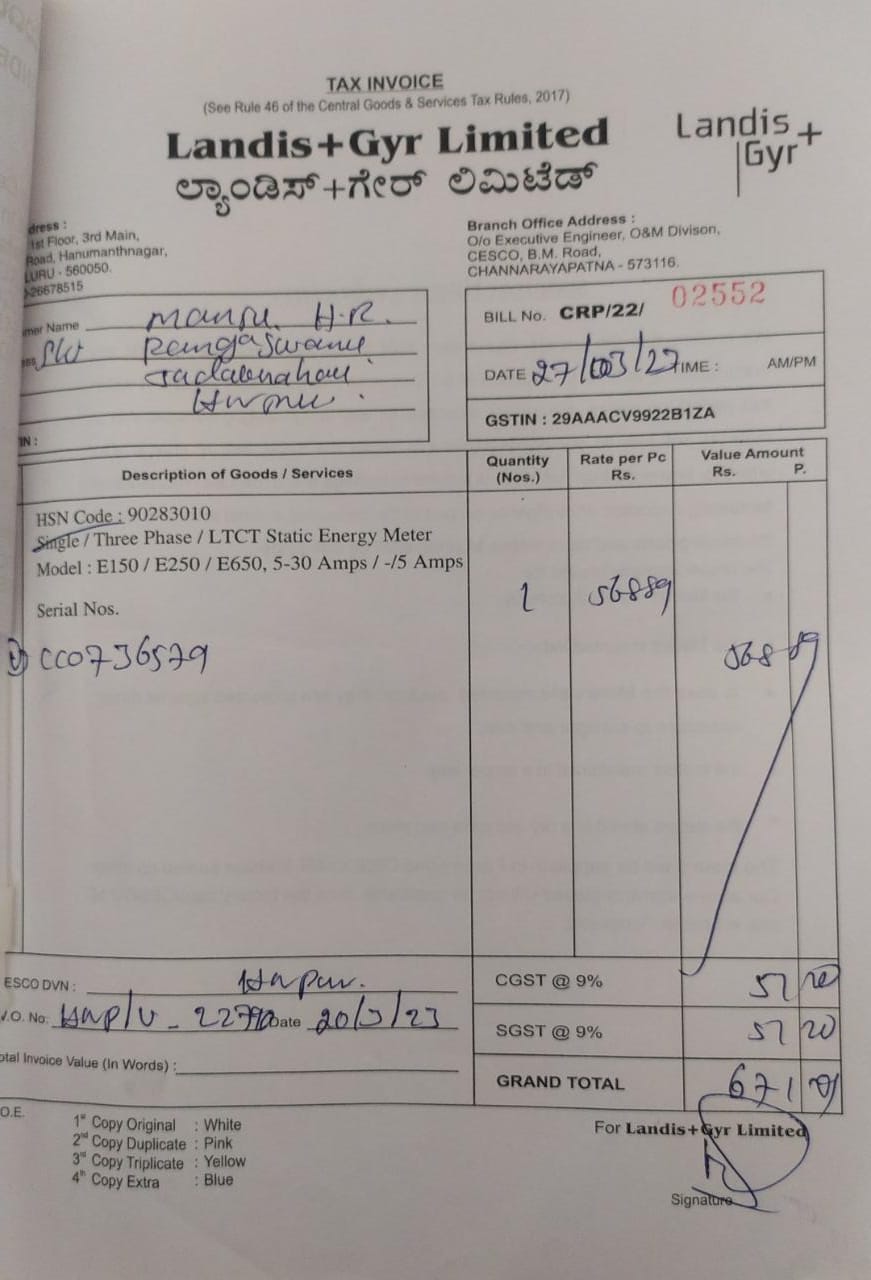 TAX INVOICE
(See Rule 46 of the Central Goods & Services Tax Rules, 2017)
Landis+Gyr Limited
Landis+
Gyr
ಲ್ಯಾಂಡಿಸ್+ಗೇರ್ ಲಿಮಿಟೆಡ್
dress :
1st Floor, 3rd Main,
Road, Hanumanthnagar,
LURU - 560050.
-26678515
Branch Office Address :
O/o Executive Engineer, O&M Divison,
CESCO, B.M. Road,
CHANNARAYAPATNA - 573116.
mer Name H.R.
ess Rangaswamy
IN :
BILL No. CRP/22/ 02552
DATE 27/03/23 TIME : AM/PM
GSTIN : 29AAACV9922B1ZA
Description of Goods / Services Quantity (Nos.) Rate per Pc Rs. Value Amount Rs. P.
HSN Code : 90283010
Single / Three Phase / LTCT Static Energy Meter
Model : E150 / E250 / E650, 5-30 Amps / -/5 Amps
1 568.89
Serial Nos.
1) CC0736579 568 89
ESCO DVN :
CGST @ 9% 51 20
V.O. No: 20/3/23 Date
SGST @ 9% 51 20
otal Invoice Value (In Words) :
GRAND TOTAL 671
O.E.
1st Copy Original : White
2nd Copy Duplicate : Pink
3rd Copy Triplicate : Yellow
4th Copy Extra : Blue
For Landis+Gyr Limited
Signature